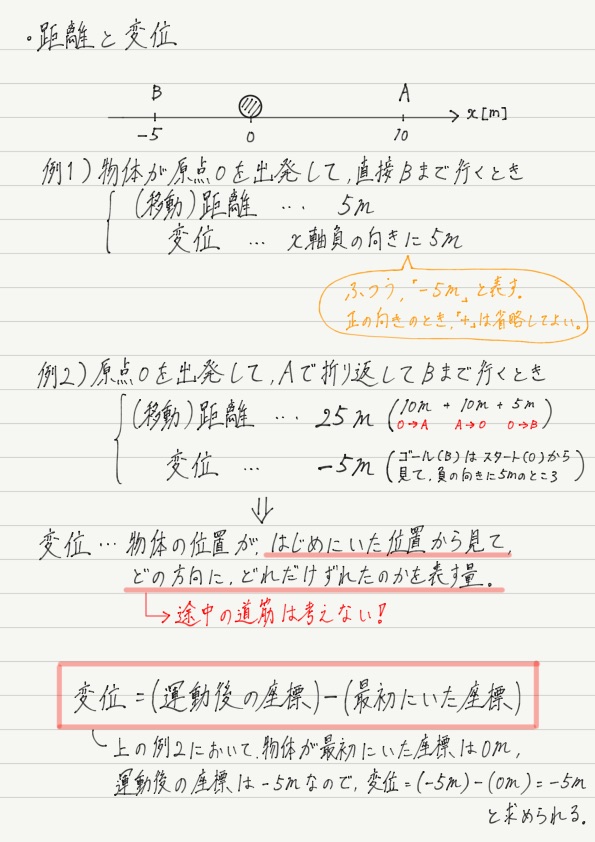 ・距離と変位
B
A
x[m]
-5
0
10
例1)物体が原点Oを出発して,直接Bまで行くとき
(移動)距離 … 5m
変位 … x軸負の向きに5m
ふつう,「-5m」と表す.
正の向きのとき,「+」は省略してよい。
例2)原点Oを出発して,Aで折り返してBまで行くとき
(移動)距離 … 25m (10m + 10m + 5m)
O→A A→O O→B
変位 … -5m (ゴール(B)はスタート(O)から
見て,負の向きに5mのところ)
⇓
変位…物体の位置が,はじめにいた位置から見て,
どの方向に,どれだけずれたのかを表す量.
→途中の道筋は考えない!
変位=(運動後の座標)-(最初にいた座標)
上の例2において,物体が最初にいた座標は0m,
運動後の座標は-5mなので,変位=(-5m)-(0m)=-5m
と求められる.